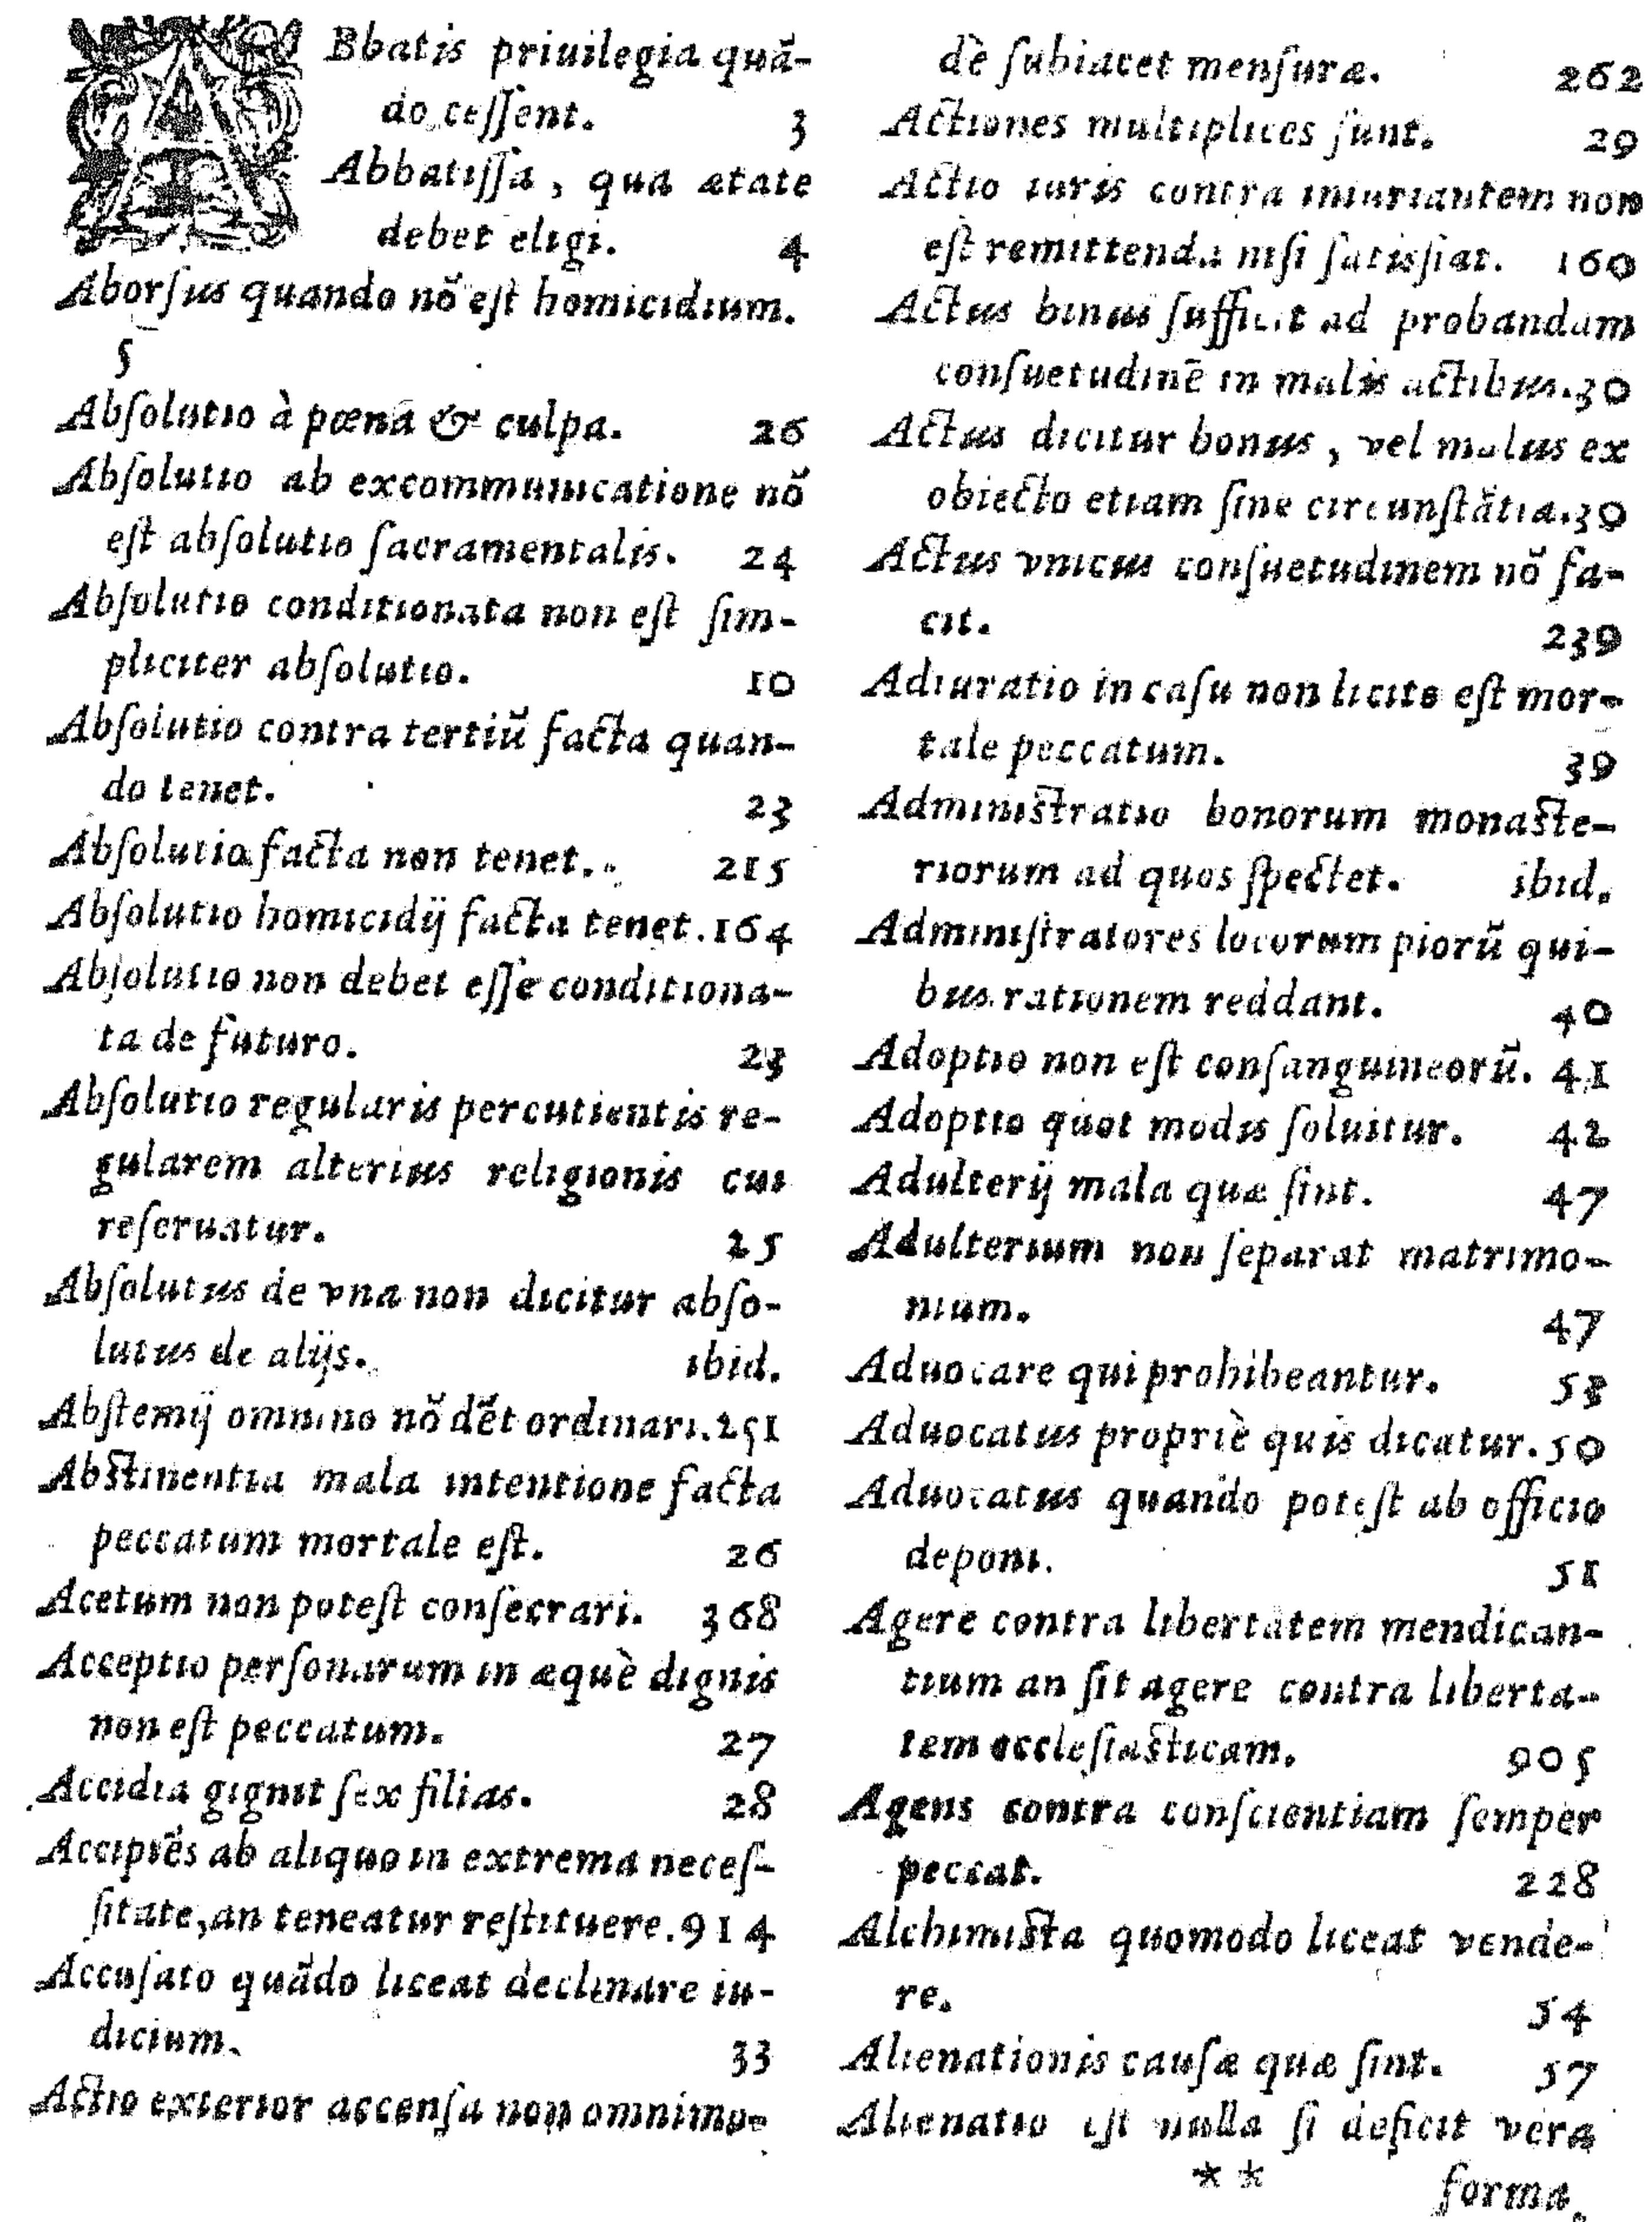 ABbatis priuilegia quã-
do cessent. 3
Abbatissa, qua ætate
debet eligi. 4
Aborsus quando nõ est homicidium.
5
Absolutio à pœna & culpa. 26
Absolutio ab excommunicatione nõ
est absolutio sacramentalis. 24
Absolutio conditionata non est sim-
pliciter absolutio. 10
Absolutio contra tertiũ facta quan-
do tenet. 23
Absolutio facta non tenet. 215
Absolutio homicidij facta tenet. 164
Absolutio non debet esse conditiona-
ta de futuro. 23
Absolutio regularis percutientis re-
gularem alterius religionis cui
reseruatur. 25
Absolutus de vna non dicitur abso-
lutus de alijs. ibid.
Abstemij omnino nõ dẽt ordinari. 251
Abstinentia mala intentione facta
peccatum mortale est. 26
Acetum non potest consecrari. 368
Acceptio personarum in æquè dignis
non est peccatum. 27
Accidia gignit sex filias. 28
Accipiẽs ab aliquo in extrema neces-
sitate, an teneatur restituere. 914
Accusato quãdo liceat declinare iu-
dicium. 33
Actio exterior accensa non omnimo-
dè subiacet mensuræ. 262
Actiones multiplices sunt. 29
Actio iuris contra iniuriantem non
est remittenda nisi satisfiat. 160
Actus binus sufficit ad probandam
consuetudinẽ in malis actibus. 30
Actus dicitur bonus, vel malus ex
obiecto etiam sine circunstãtia. 30
Actus vnicus consuetudinem nõ fa-
cit. 239
Adiuratio in casu non licito est mor-
tale peccatum. 39
Administratio bonorum monaste-
riorum ad quos spectet. ibid.
Administratores locorum piorũ qui-
bus rationem reddant. 40
Adoptio non est consanguineorũ. 41
Adoptio quot modis soluitur. 42
Adulterij mala quæ sint. 47
Adulterium non separat matrimo-
nium. 47
Aduocare qui prohibeantur. 53
Aduocatus propriè quis dicatur. 50
Aduocatus quando potest ab officio
deponi. 51
Agere contra libertatem mendican-
tium an sit agere contra liberta-
tem ecclesiasticam. 905
Agens contra conscientiam semper
peccat. 228
Alchimista quomodo liceat vende-
re. 54
Alienationis causæ quæ sint. 57
Alienatio est nulla si deficit vera
** forma.